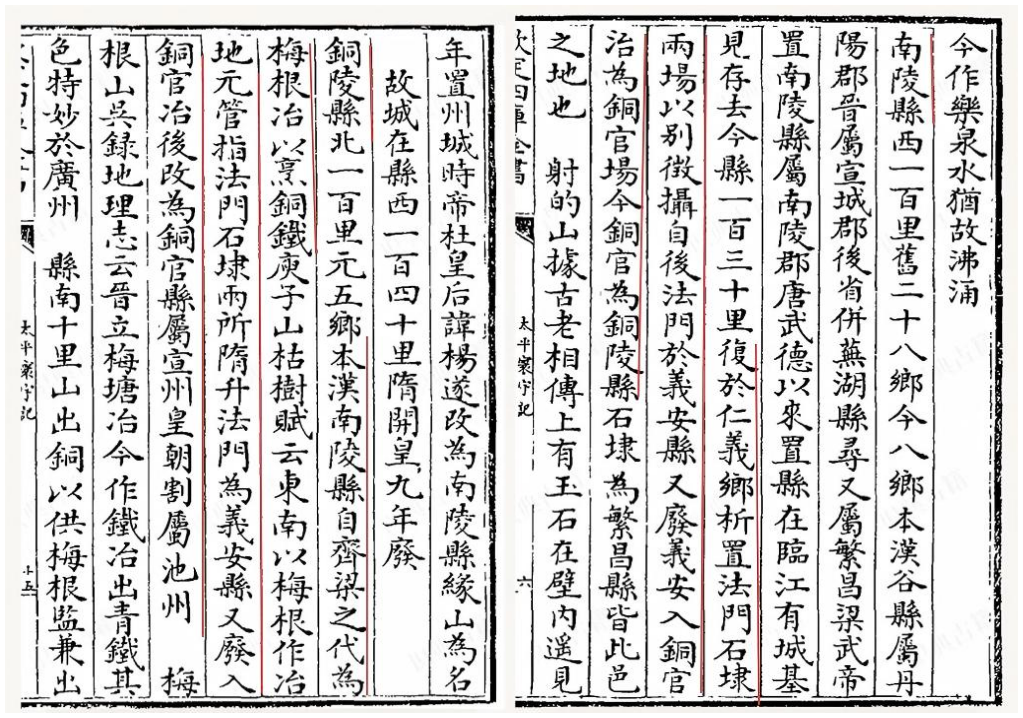 今作樂泉水猶故沸涌
南陵縣西一百里舊二十八鄉今八鄉本漢谷縣屬丹
陽郡晉屬宣城郡後省併蕪湖縣尋又屬繁昌梁武帝
置南陵縣屬南陵郡唐武德以來置縣在臨江有城基
見存去今縣一百三十里復於仁義鄉析置法門石埭
兩場以別徵攝自後法門於義安縣又廢義安入銅官
治為銅官場今銅官為銅陵縣石埭為繁昌縣皆此邑
之地也 射的山據古老相傳上有王石在壁内遥見
欽定四庫全書 太平寰宇記 六
年置州城時帝杜皇后諱楊遂改為南陵縣緣山為名
故城在縣西一百四十里隋開皇九年廢
銅陵縣北一百里元五鄉本漢南陵縣自齊梁之代為
梅根冶以烹銅鐵庾子山枯樹賦云東南以梅根作冶
地元管指法門石埭兩所隋升法門為義安縣又廢入
銅官冶後改為銅官縣屬宣州皇朝割屬池州 梅
根山吳録地理志云晉立梅塘冶今作鐵冶出青鐵其
色特妙於廣州 縣南十里山出銅以供梅根監兼出
太平寰宇記 十五